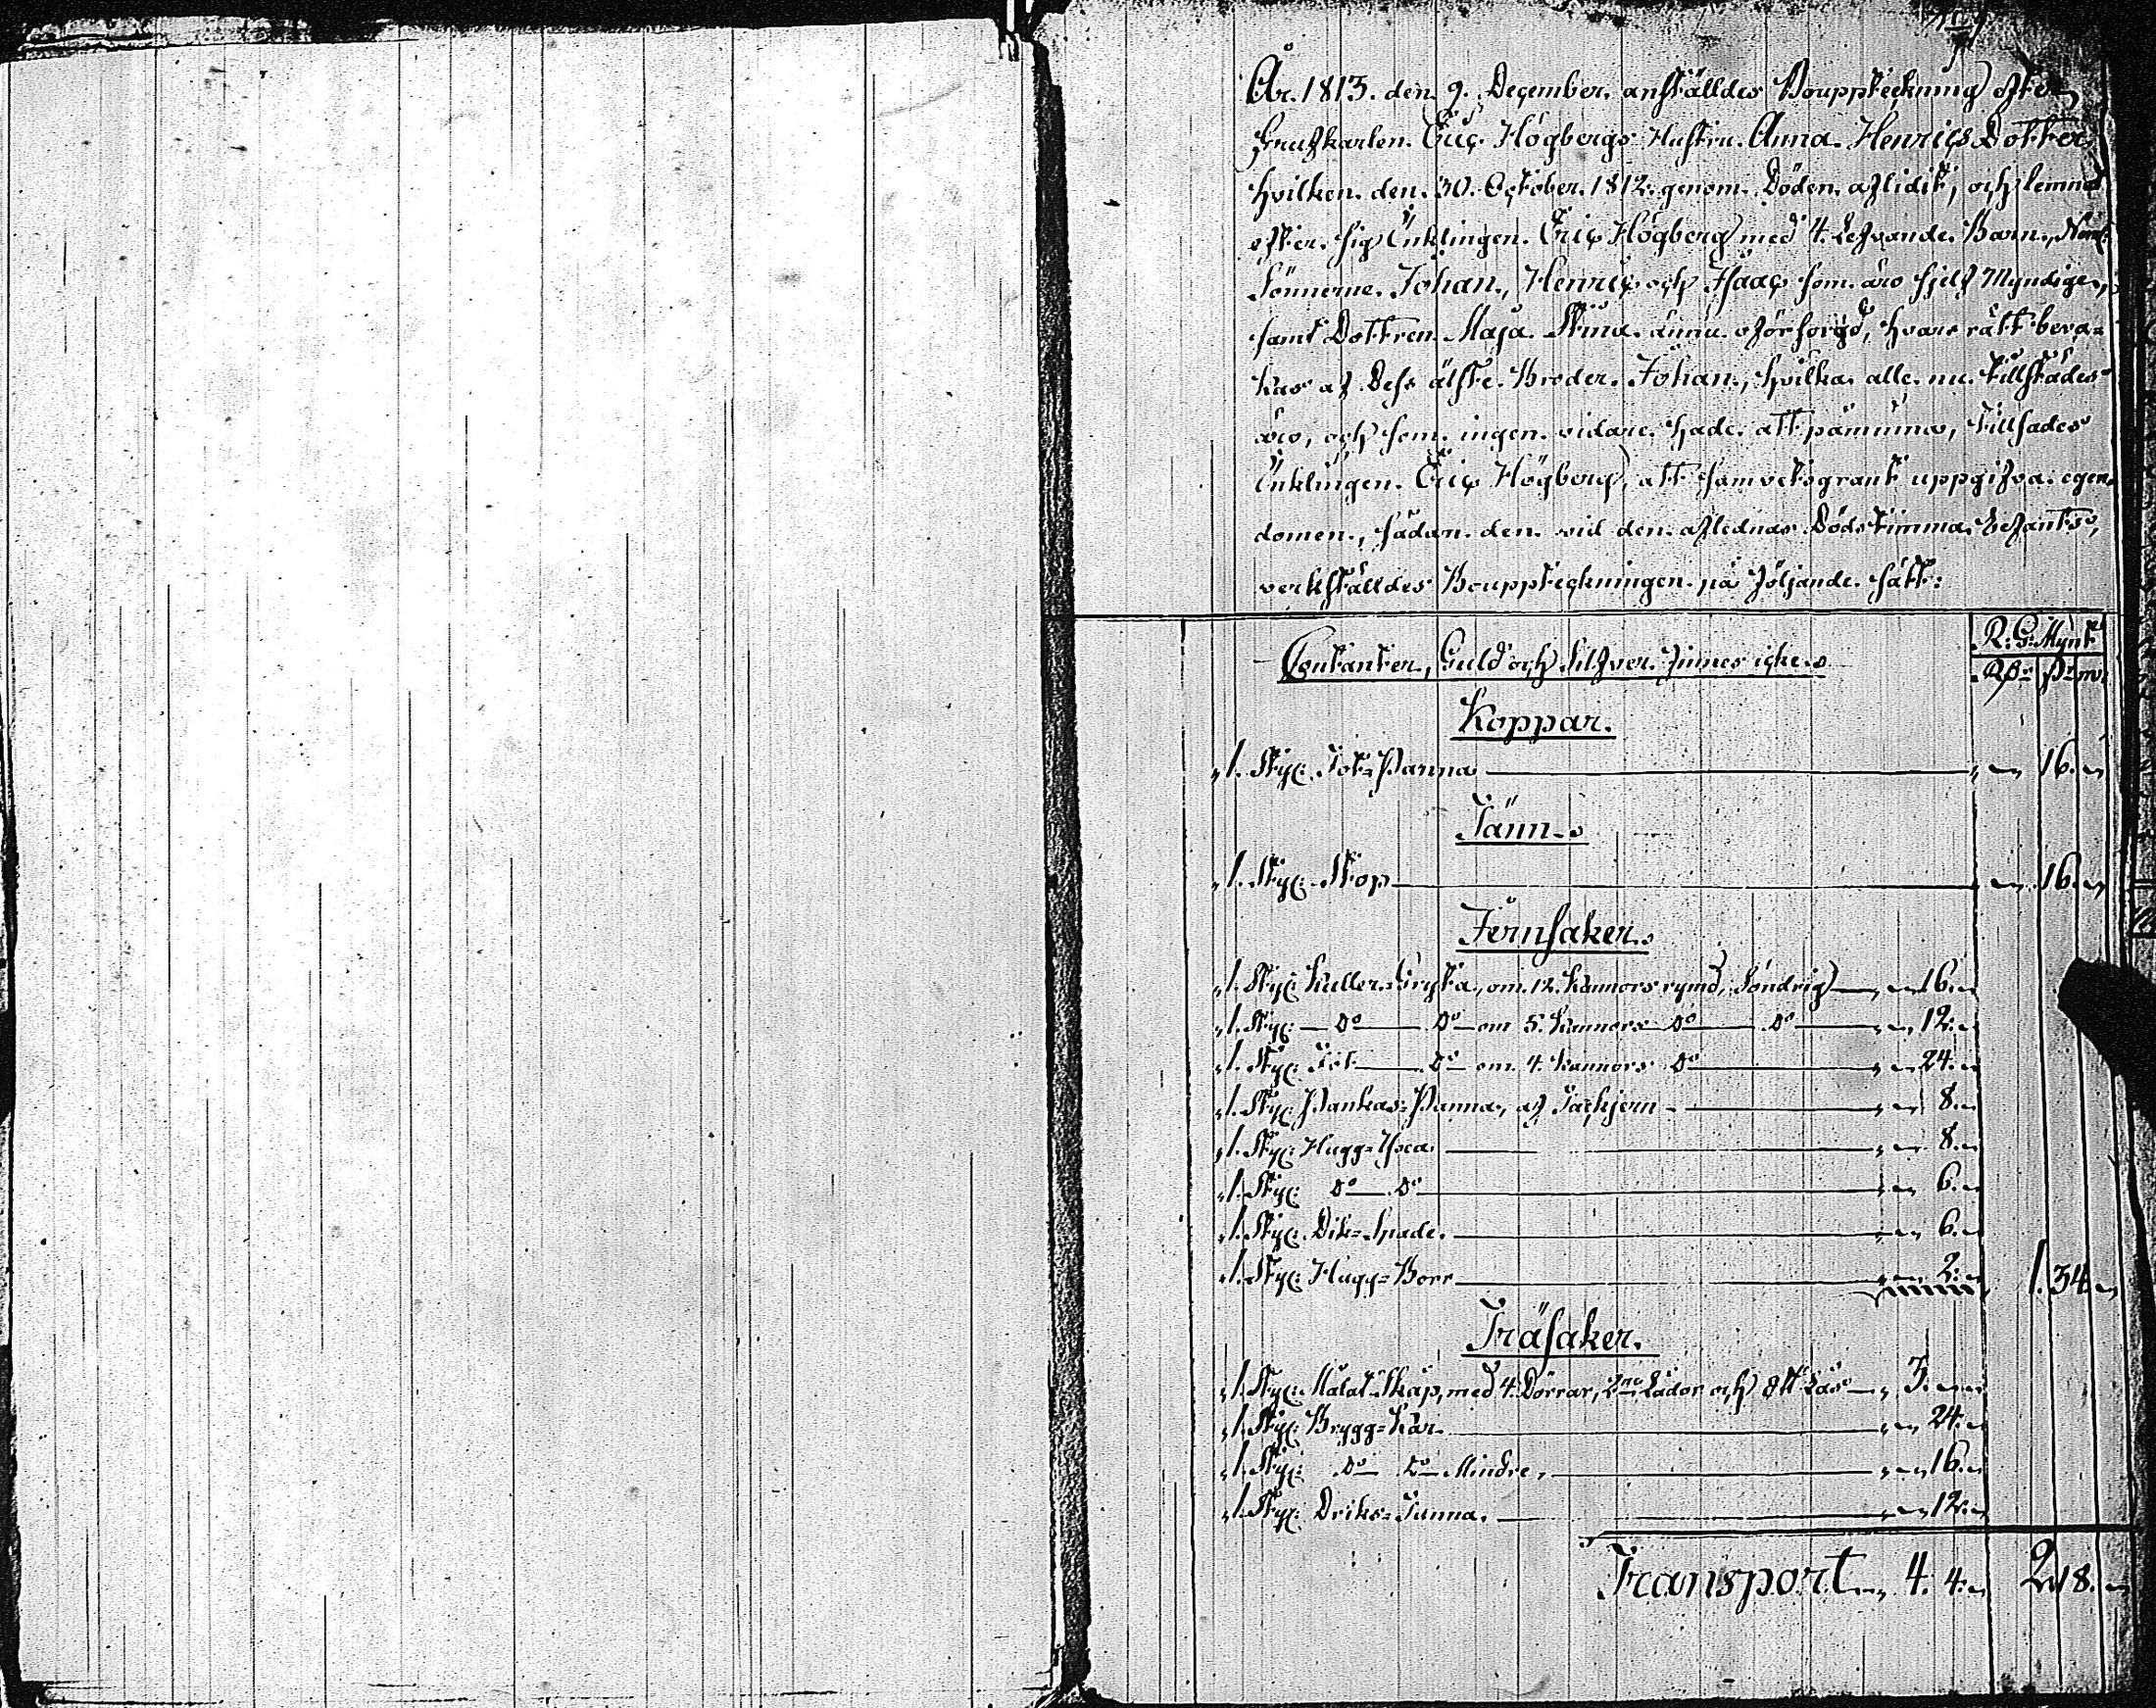 År. 1813. den 9. December. anställdes Bouppteckning efter
Eric Högbergs Hustru. Anna. Henrics Dotter,
hvilken. den. 30. October. 1812. genom. Döden. aflidit, och lemnat
efter. sig Enklingen. Eric Högberg med 4. Lefvande. Barn., Neml:
Sönnerne. Johan., Henric och Isaac som. äro sjelf Myndige,
samt Dottren. Maja. Stina. ännu. oförsörgd, hvars rätt beva=
kas af Dess älste. Broder. Johan., hvilka. alle. nu. tillstädes
äro, och som. ingen. vidare. hade. att påminna, tillsades
Enklingen. Eric Högberg, att samvetsgrant uppgifva. egen=
domen., sådan. den. vid den. aflednas Dödstimma. befants,
verkställdes Bouppteckningen. på följande. sätt:
R: G: Mynt
Contanter, Guld och Silfver. finnes icke.
Koppar.
1. Styc: Panna 16.
Tänn.
1. Styc: Stop 16.
Jernsaker.
1. Styc: Kuller=Gryta, om. 12. Kannors rymd, Söndrig 16.
1. Styc: Do Do om 5. Kannors Do Do 12.
1. Styc: Do om 4. Kannors Do 24.
1. Styc: Pankas=Panna, af Tackjern 8.
1. Styc: Hugg=Yxa 8.
1. Styc: Do Do 6.
1. Styc: Dik=Spade. 6.
1. Styc: Hugg=Borr 2. 1. 34.
Träsaker.
1. Styc: Målat Skåp, med 4. Dörrar, 2ne Lådor och ett Lås 3.
1. Styc: Brygg=Kar. 24.
1. Styc: Do Do Mindre, 16.
1. Styc: Driks=Tunna. 12.
Transport 4. 4. 2. 18.